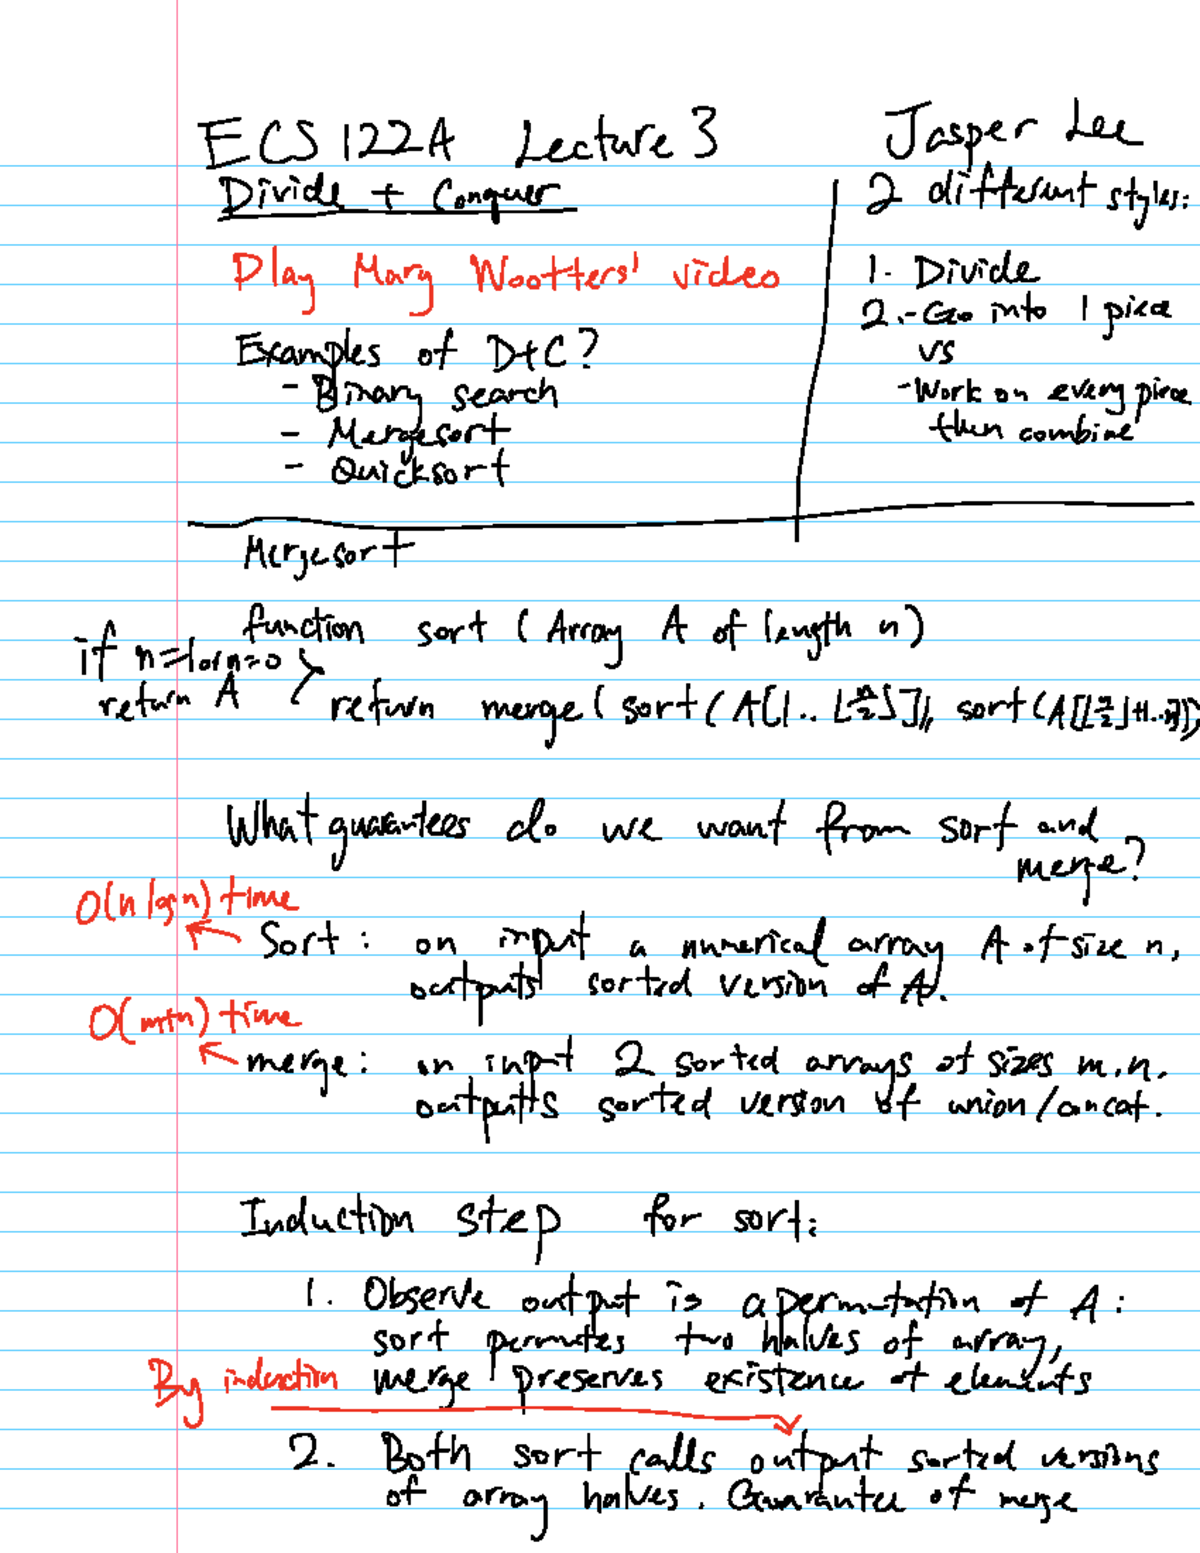 ECS 122A Lecture 3
Jasper Lee
Divide + Conquer
Play Mary Wootters' video
Examples of D+C?
- Binary search
- Mergesort
- Quicksort
2 different styles:
1. Divide
2. - Go into 1 piece
vs
- Work on every piece
then combine
Mergesort
function sort (Array A of length n)
if n=1 or n=0
return A
return merge(sort(A[1..⌊n/2⌋]), sort(A[⌊n/2⌋+1..n]))
What guarantees do we want from sort and
merge?
O(n log n) time
Sort: on input a numerical array A of size n,
outputs sorted version of A.
O(m+n) time
merge: on input 2 sorted arrays of sizes m,n.
outputs sorted version of union/concat.
Induction step for sort:
1. Observe output is a permutation of A:
sort permutes two halves of array,
merge preserves existence of elements
By induction
2. Both sort calls output sorted versions
of array halves. Guarantee of merge